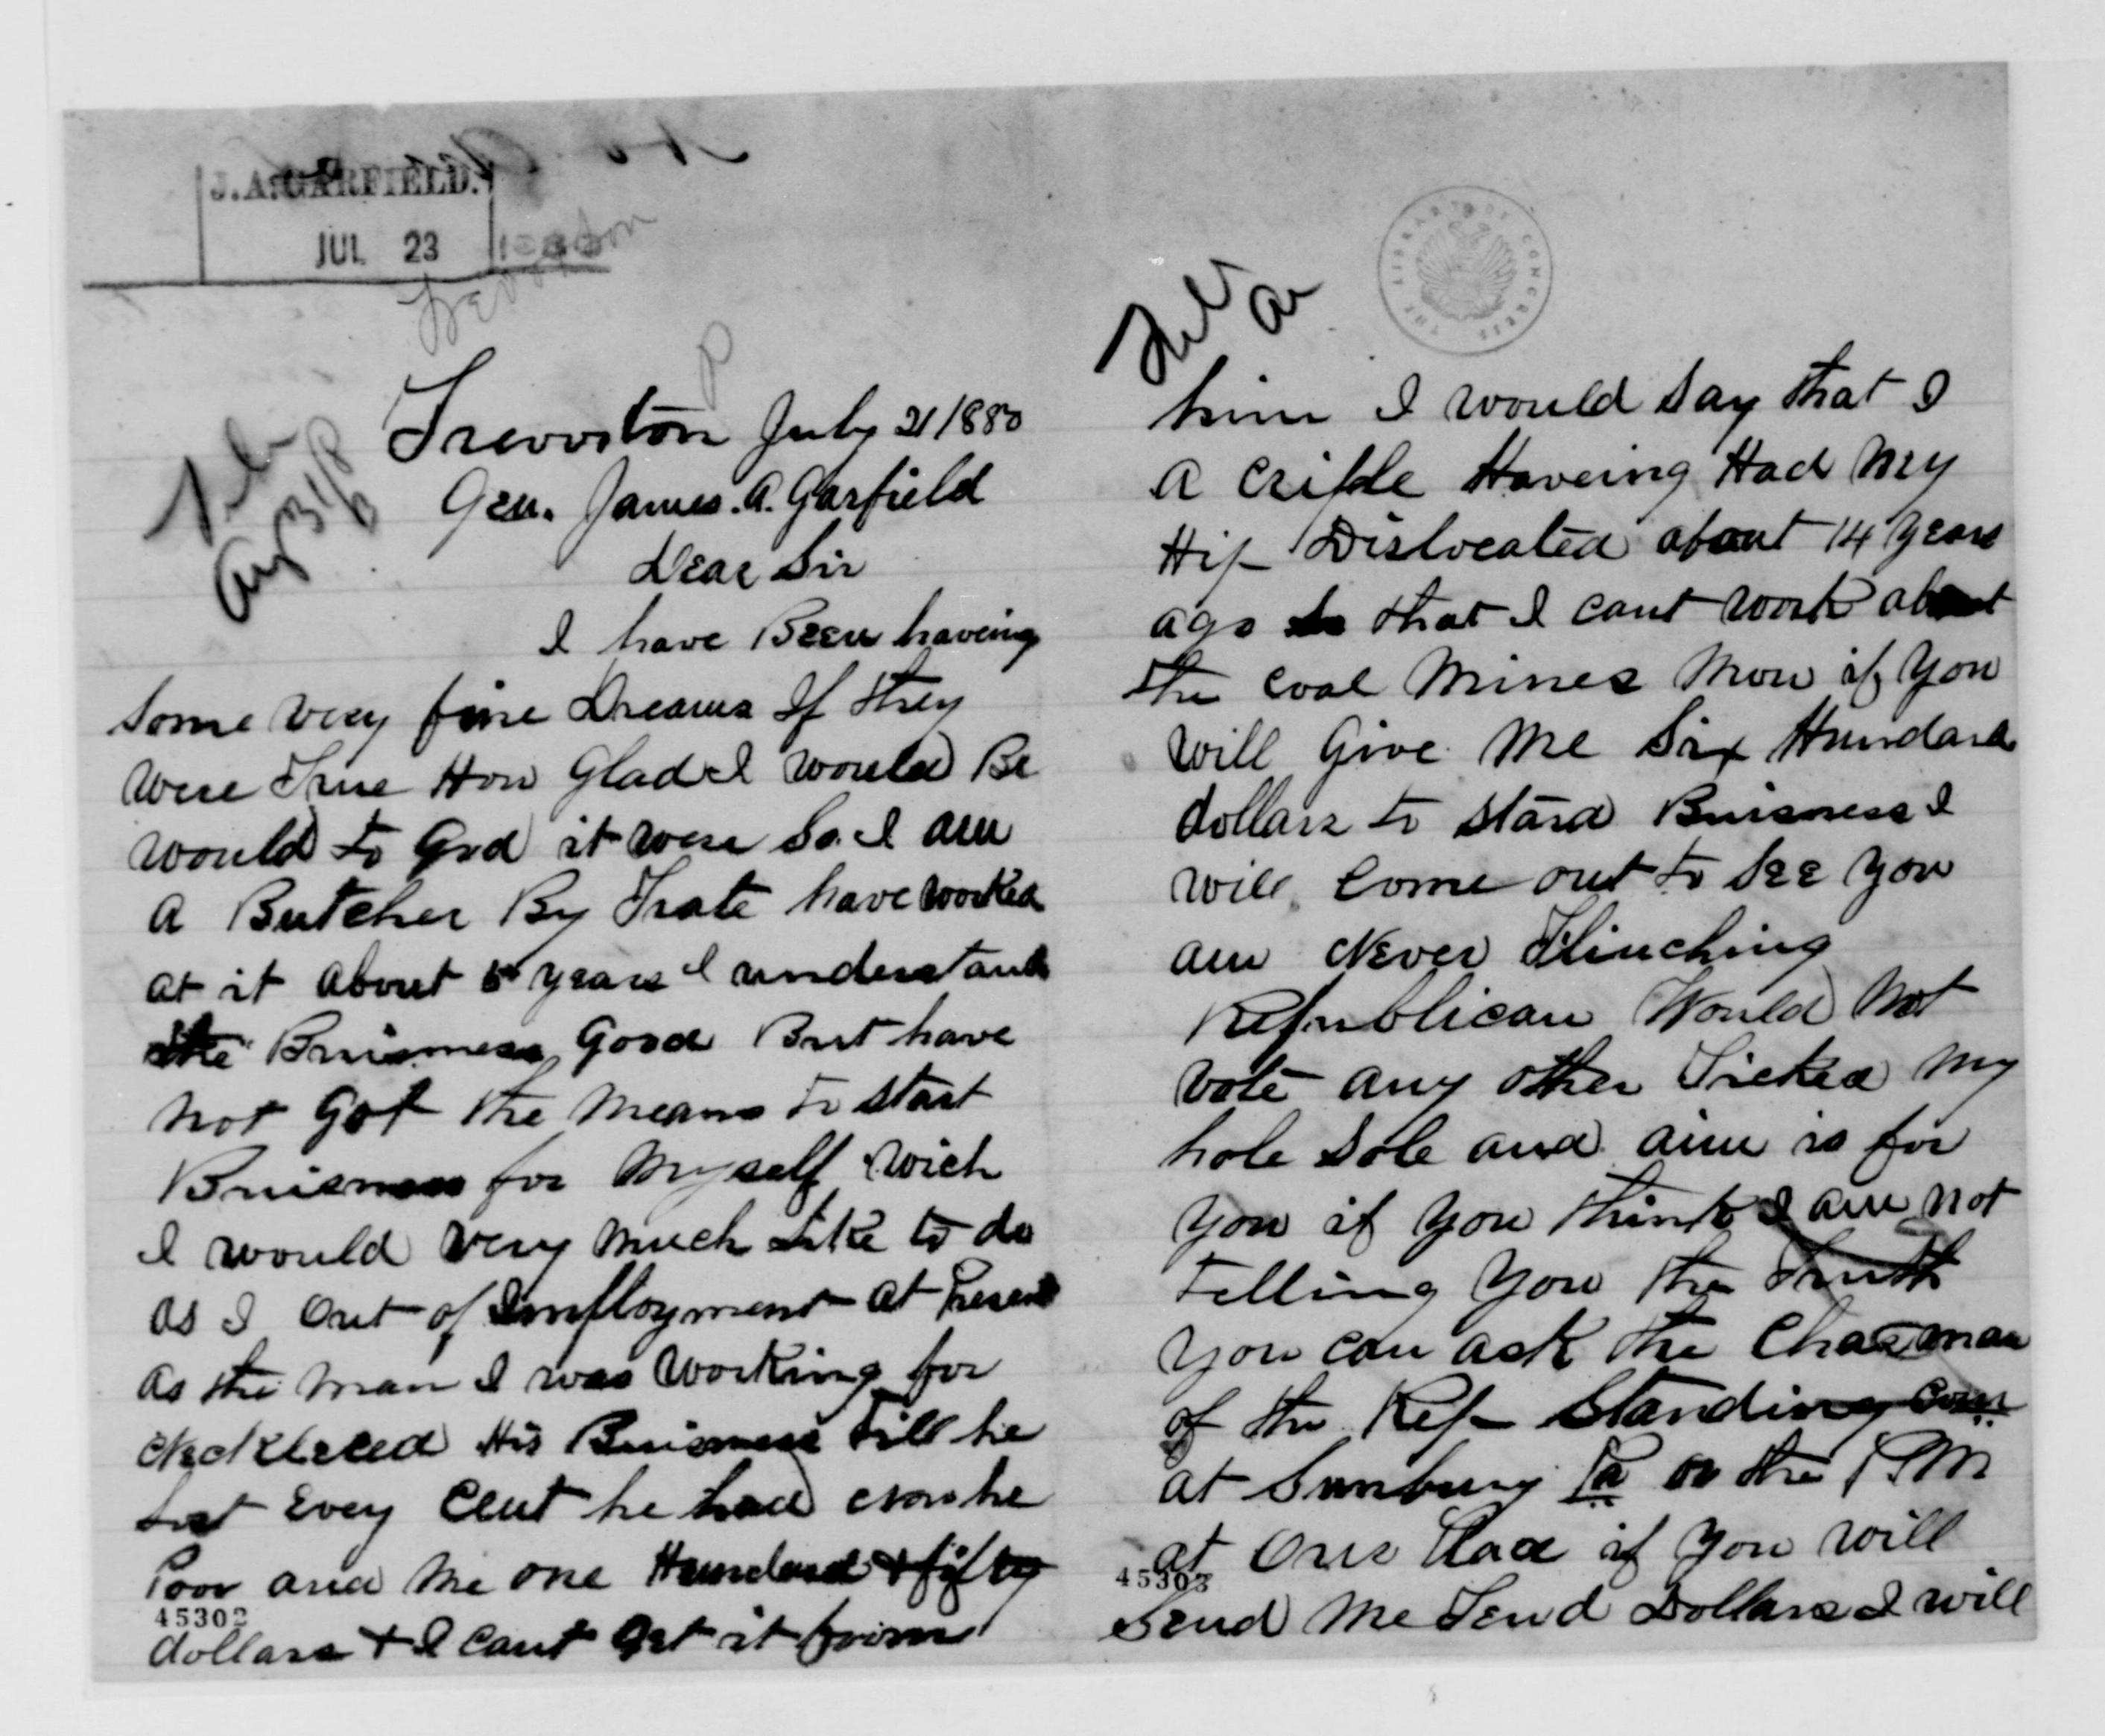 J.A. GARFIELD.
JUL 23 1880
Trevorton
Trevorton July 21 1880
Gen. James. A. Garfield
Dear Sir
I have Been having
Some very fine Dreams If they
were True How Glad I would Be
would to God it were So. I am
A Butcher By Trate have worked
at it about 5 years I understand
the Buisness Good But have
not got the means to start
Buisness for Myself wich
I would very much Like to do
as I Out of Employment at Present
as the man I was working for
Neckleced His Buisness till he
Lost Evey Cent he had now he
Poor and me one Hundard + fifty
45302
dollars + I cant get it from
THE LIBRARY OF CONGRESS
him I would say that I
A Criple Haveing Had My
Hip Dislocated about 14 years
ago so that I cant work about
the coal Mines Now if you
will Give Me Six Hundard
dollars to stard Buisness I
will Come out to see you
am Never Flinching
Republican Would Not
vote any other Ticked My
hole Sole and aim is for
you if you think I am not
Telling You the Truth
you can ask the Chairman
of the Rep Standing Com
at Sunbury Pa or the P.M
at Our Place if you will
45303
Send Me Tend Dollars I will